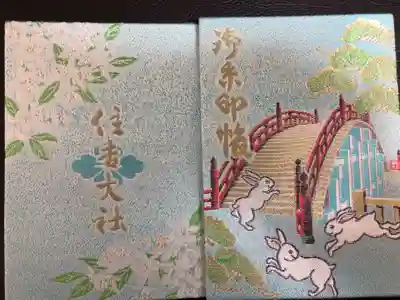 御朱印帳
住吉大社